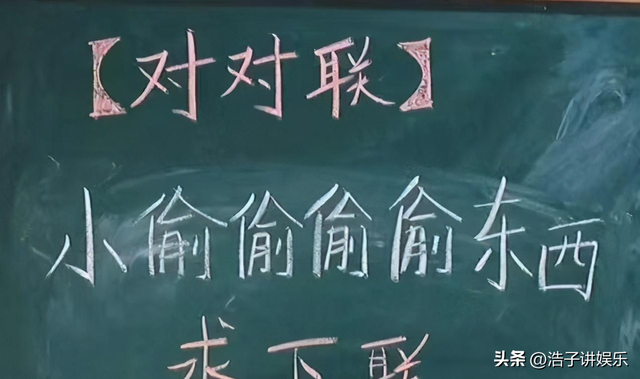 【对对联】
小偷偷偷偷东西
求下联
头条 @浩子讲娱乐